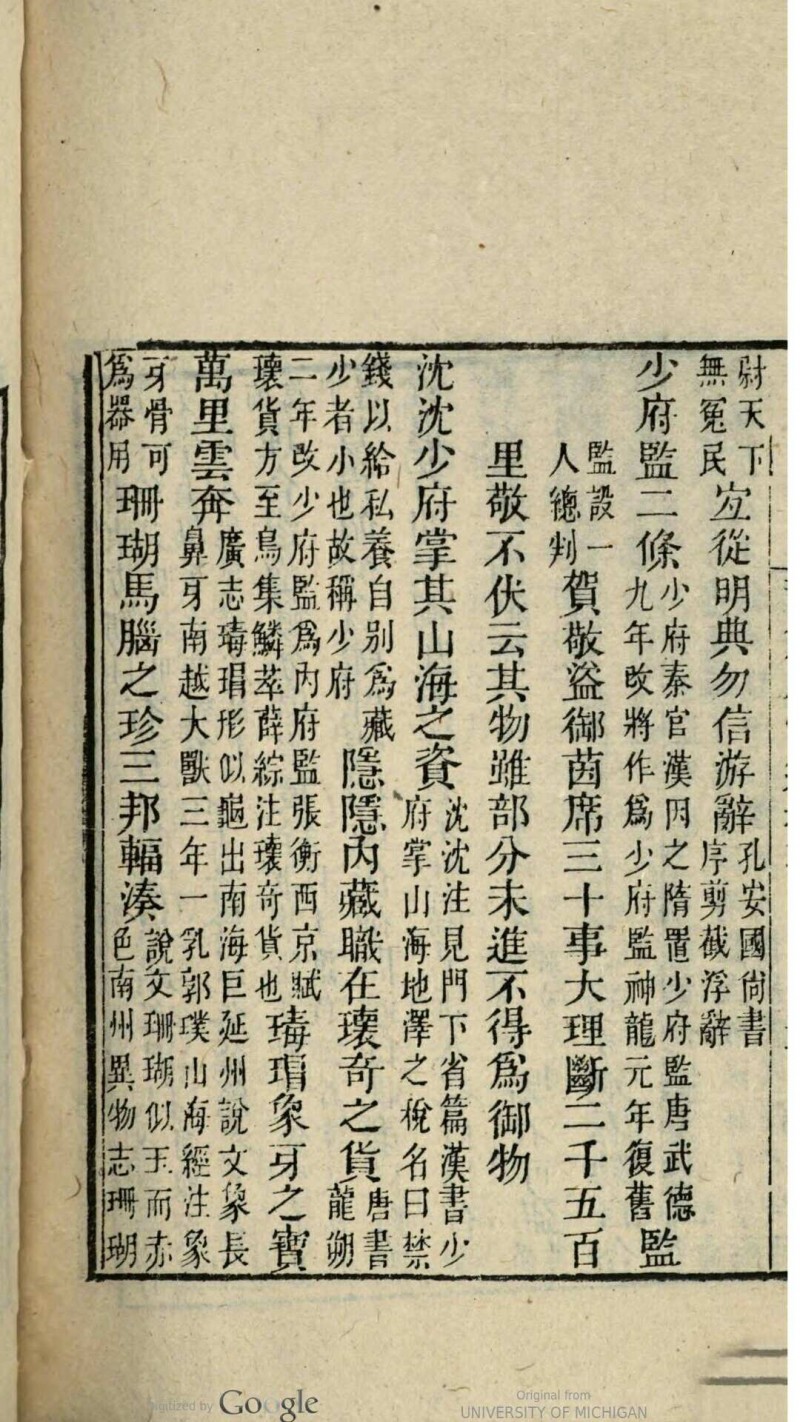 尉天下
無冤民
宜從明典勿信游辭
孔安國尚書
序剪截浮辭
少府監二條
少府秦官漢因之隋置少府監唐武德
九年改將作爲少府監神龍元年復舊
監
監設一
人總判
賀敬盜御茵席三十事大理斷二千五百
里敬不伏云其物雖部分未進不得爲御物
沈沈少府掌其山海之資
沈沈注見門下省篇漢書少
府掌山海地澤之稅名曰禁
錢以給私養自别爲藏
少者小也故稱少府
隱隱内藏職在瓌奇之貨
唐書
龍朔
二年改少府監爲内府監張衡西京賦
瓌貨方至鳥集鱗萃薛綜注瓌奇貨也
瑇瑁象牙之寶
萬里雲奔
廣志瑇瑁形似龜出南海巨延州說文象長
鼻牙南越大獸三年一乳郭璞山海經注象
牙骨可
爲器用
珊瑚馬腦之珍三邦輻湊
說文珊瑚似玉而赤
色南州異物志珊瑚
Digitized by Google
Original from
UNIVERSITY OF MICHIGAN